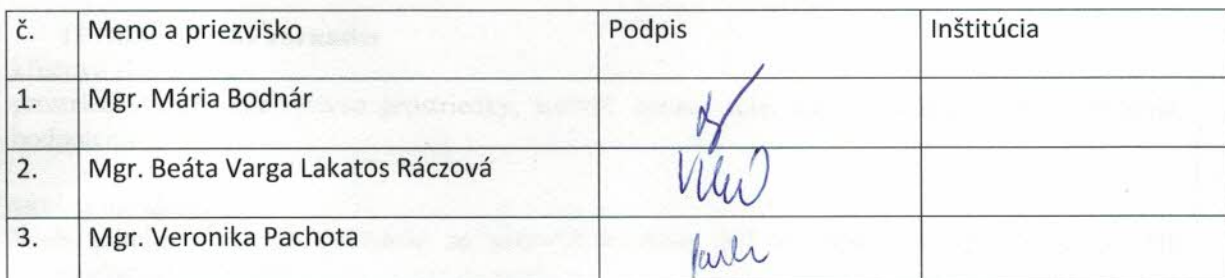 č. Meno a priezvisko Podpis Inštitúcia
1. Mgr. Mária Bodnár
2. Mgr. Beáta Varga Lakatos Ráczová
3. Mgr. Veronika Pachota